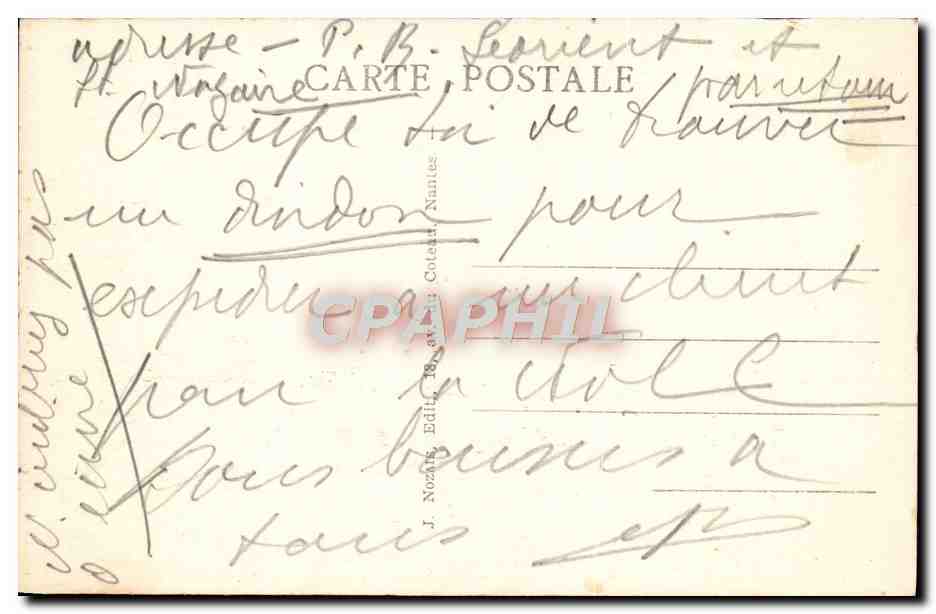 adresse - P. R. Lorient et
St Nazaire
CARTE POSTALE
par retour
Occupe toi de trouver
un dindon pour
expédier à un client
pour la Noël
Bons baisers à
tous
N'oubliez pas
J. Nozais, Edit., 18, av. du Coteau, Nantes
CPAPHIL